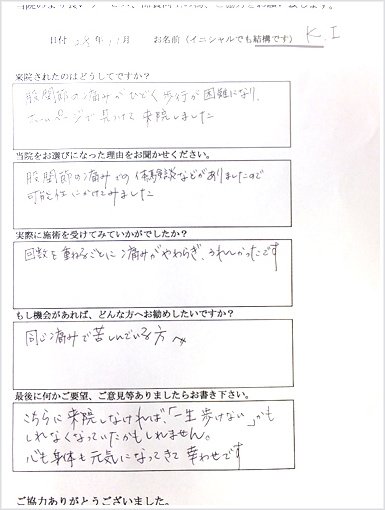 日付 28年 11月 お名前（イニシャルでも結構です） K.I
来院されたのはどうしてですか？
股関節の痛みがひどく歩行が困難になり、
ホームページで見つけて来院しました
当院をお選びになった理由をお聞かせください。
股関節の痛みの体験談などがありましたので
可能性にかけてみました
実際に施術を受けてみていかがでしたか？
回数を重ねるごとに痛みがやわらぎ、うれしかったです
もし機会があれば、どんな方へお勧めしたいですか？
同じ痛みで苦しんでいる方へ
最後に何かご要望、ご意見等ありましたらお書き下さい。
こちらに来院しなければ、「一生歩けない」かも
しれなくなっていたかもしれません。
心も身体も元気になってきて幸わせです
ご協力ありがとうございました。